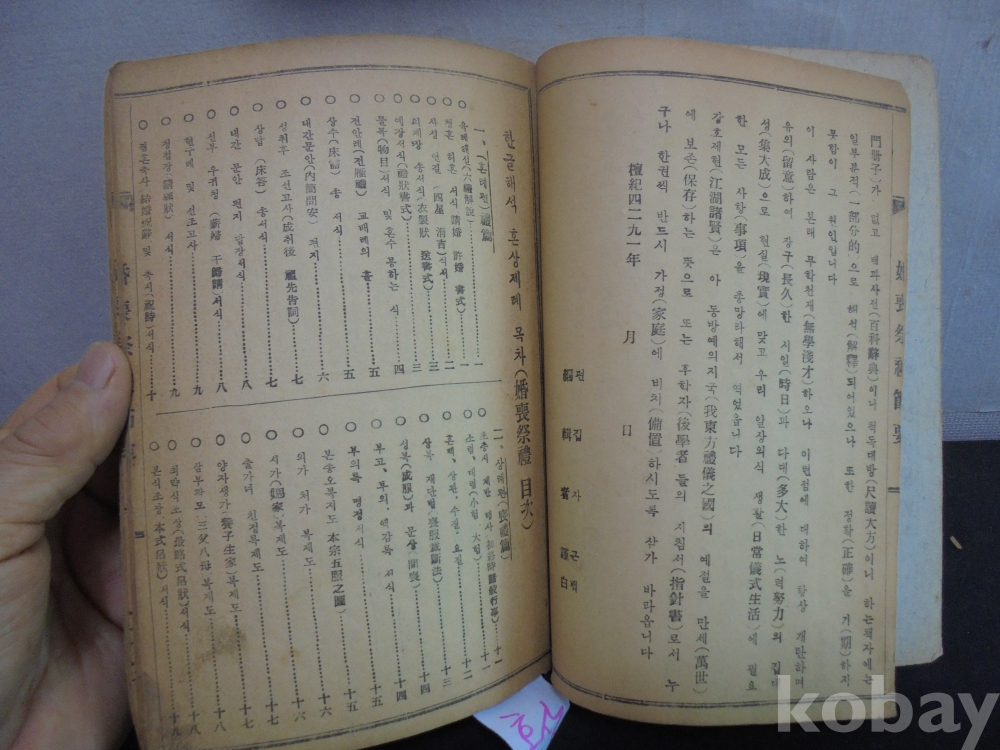 門冊子)가 없고 백과사전(百科辭典)이니 척독대방(尺牘大方)이니 하는책자에는
일부분적(一部分的)으로 해석(解釋)되어있으나 또한 정확(正確)을 기(期)하지
못함이 그 원인입니다
이 사람은 본래 무학천재(無學淺才)하오나 이런점에 대하여 항상 개탄하며
유의(留意)하여 장구(長久)한 시일(時日)과 다대(多大)한 노력(努力)의 집대
성(集大成)으로 현실(現實)에 맞고 우리 일상의식 생활(日常儀式生活)에 필요
한 모든 사항(事項)을 총망라해서 엮었읍니다
강호제현(江湖諸賢)은 아 동방예의지국(我東方禮儀之國)의 예절을 만세(萬世)
에 보존(保存)하는 뜻으로 또는 후학자(後學者)들의 지침서(指針書)로서 누
구나 한권씩 반드시 가정(家庭)에 비치(備置)하시도록 삼가 바라옵니다
檀紀四二九一年 月 日
편집자 근백
編輯者 謹白
婚喪祭禮節要
한글해석 혼상제례 목차(婚喪祭禮 目次)
一、(혼례편)(婚禮篇)
○ 육례해설(六禮解說)……一
○ 청혼 허혼 서식(請婚 許婚 書式)……二
○ 사성 연길(四星 涓吉)서식……三
○ 의제장 송서식(衣製狀 送書式)……三
○ 예장서식(禮狀書式)……四
○ 물목(物目)서식 및 혼수 봉하는 식……五
○ 전안례(전雁禮) 교배례의 홀……五
○ 상수(床需) 송 서식……五
○ 내간문안(內簡問安) 편지……六
○ 성취후 조선고사(成取後 祖先告詞)……七
○ 상답(床答)송서식……七
○ 내간 문안 편지 답장서식……八
○ 신부 우귀청(新婦 于歸請)서식……八
○ 현구례 및 선조고사……九
○ 청첩장(請牒狀) 서식……九
○ 결혼축사(結婚祝辭)및 축시(祝詩)서식……十
二、상례편(喪禮篇)
○ 소렴、대렴(小殮、大殮)……十二
○ 혼백、상관、수질、요질……十三
○ 상복 재단법(喪服裁斷法)……十四
○ 성복(成服)과 문상(問喪)……十四
○ 부고、부의、색감록 서식……十四
○ 부의록 명정서식……十五
○ 본종오복제도(本宗五服之圖)……十五
○ 외가 처가 복제도……十六
○ 시가(媤家)복제도……十六
○ 출가녀 친정복제도……十七
○ 양자생가(養子生家)복제도……十七
○ 삼부팔모(三父八母)복제도……十八
○ 최약식 조상(最略式 吊狀)서식……十八
○ 본식조장(本式吊狀)서식……十九
kobay